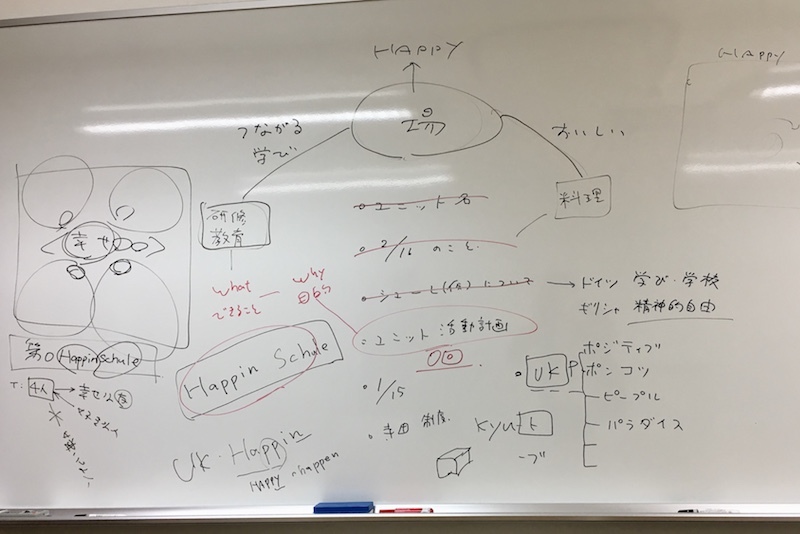 HAPPY
HAPPY
場
つながる
学び
おいしい
研修
教育
料理
幸せ
・ユニット名
・2/16 のこと
what
できること
why
・シューレ(仮)について → ドイツ 学び・学校
ギリシャ 精神的自由
・ユニット 活動計画
第0 Happin Schule
Happin Schule
T: 4人
・1/15
・UK P
ポジティブ
ポンコツ
ピープル
パラダイス
制度
Kyu ト
ーブ
UK・Happin
HAPPY happen